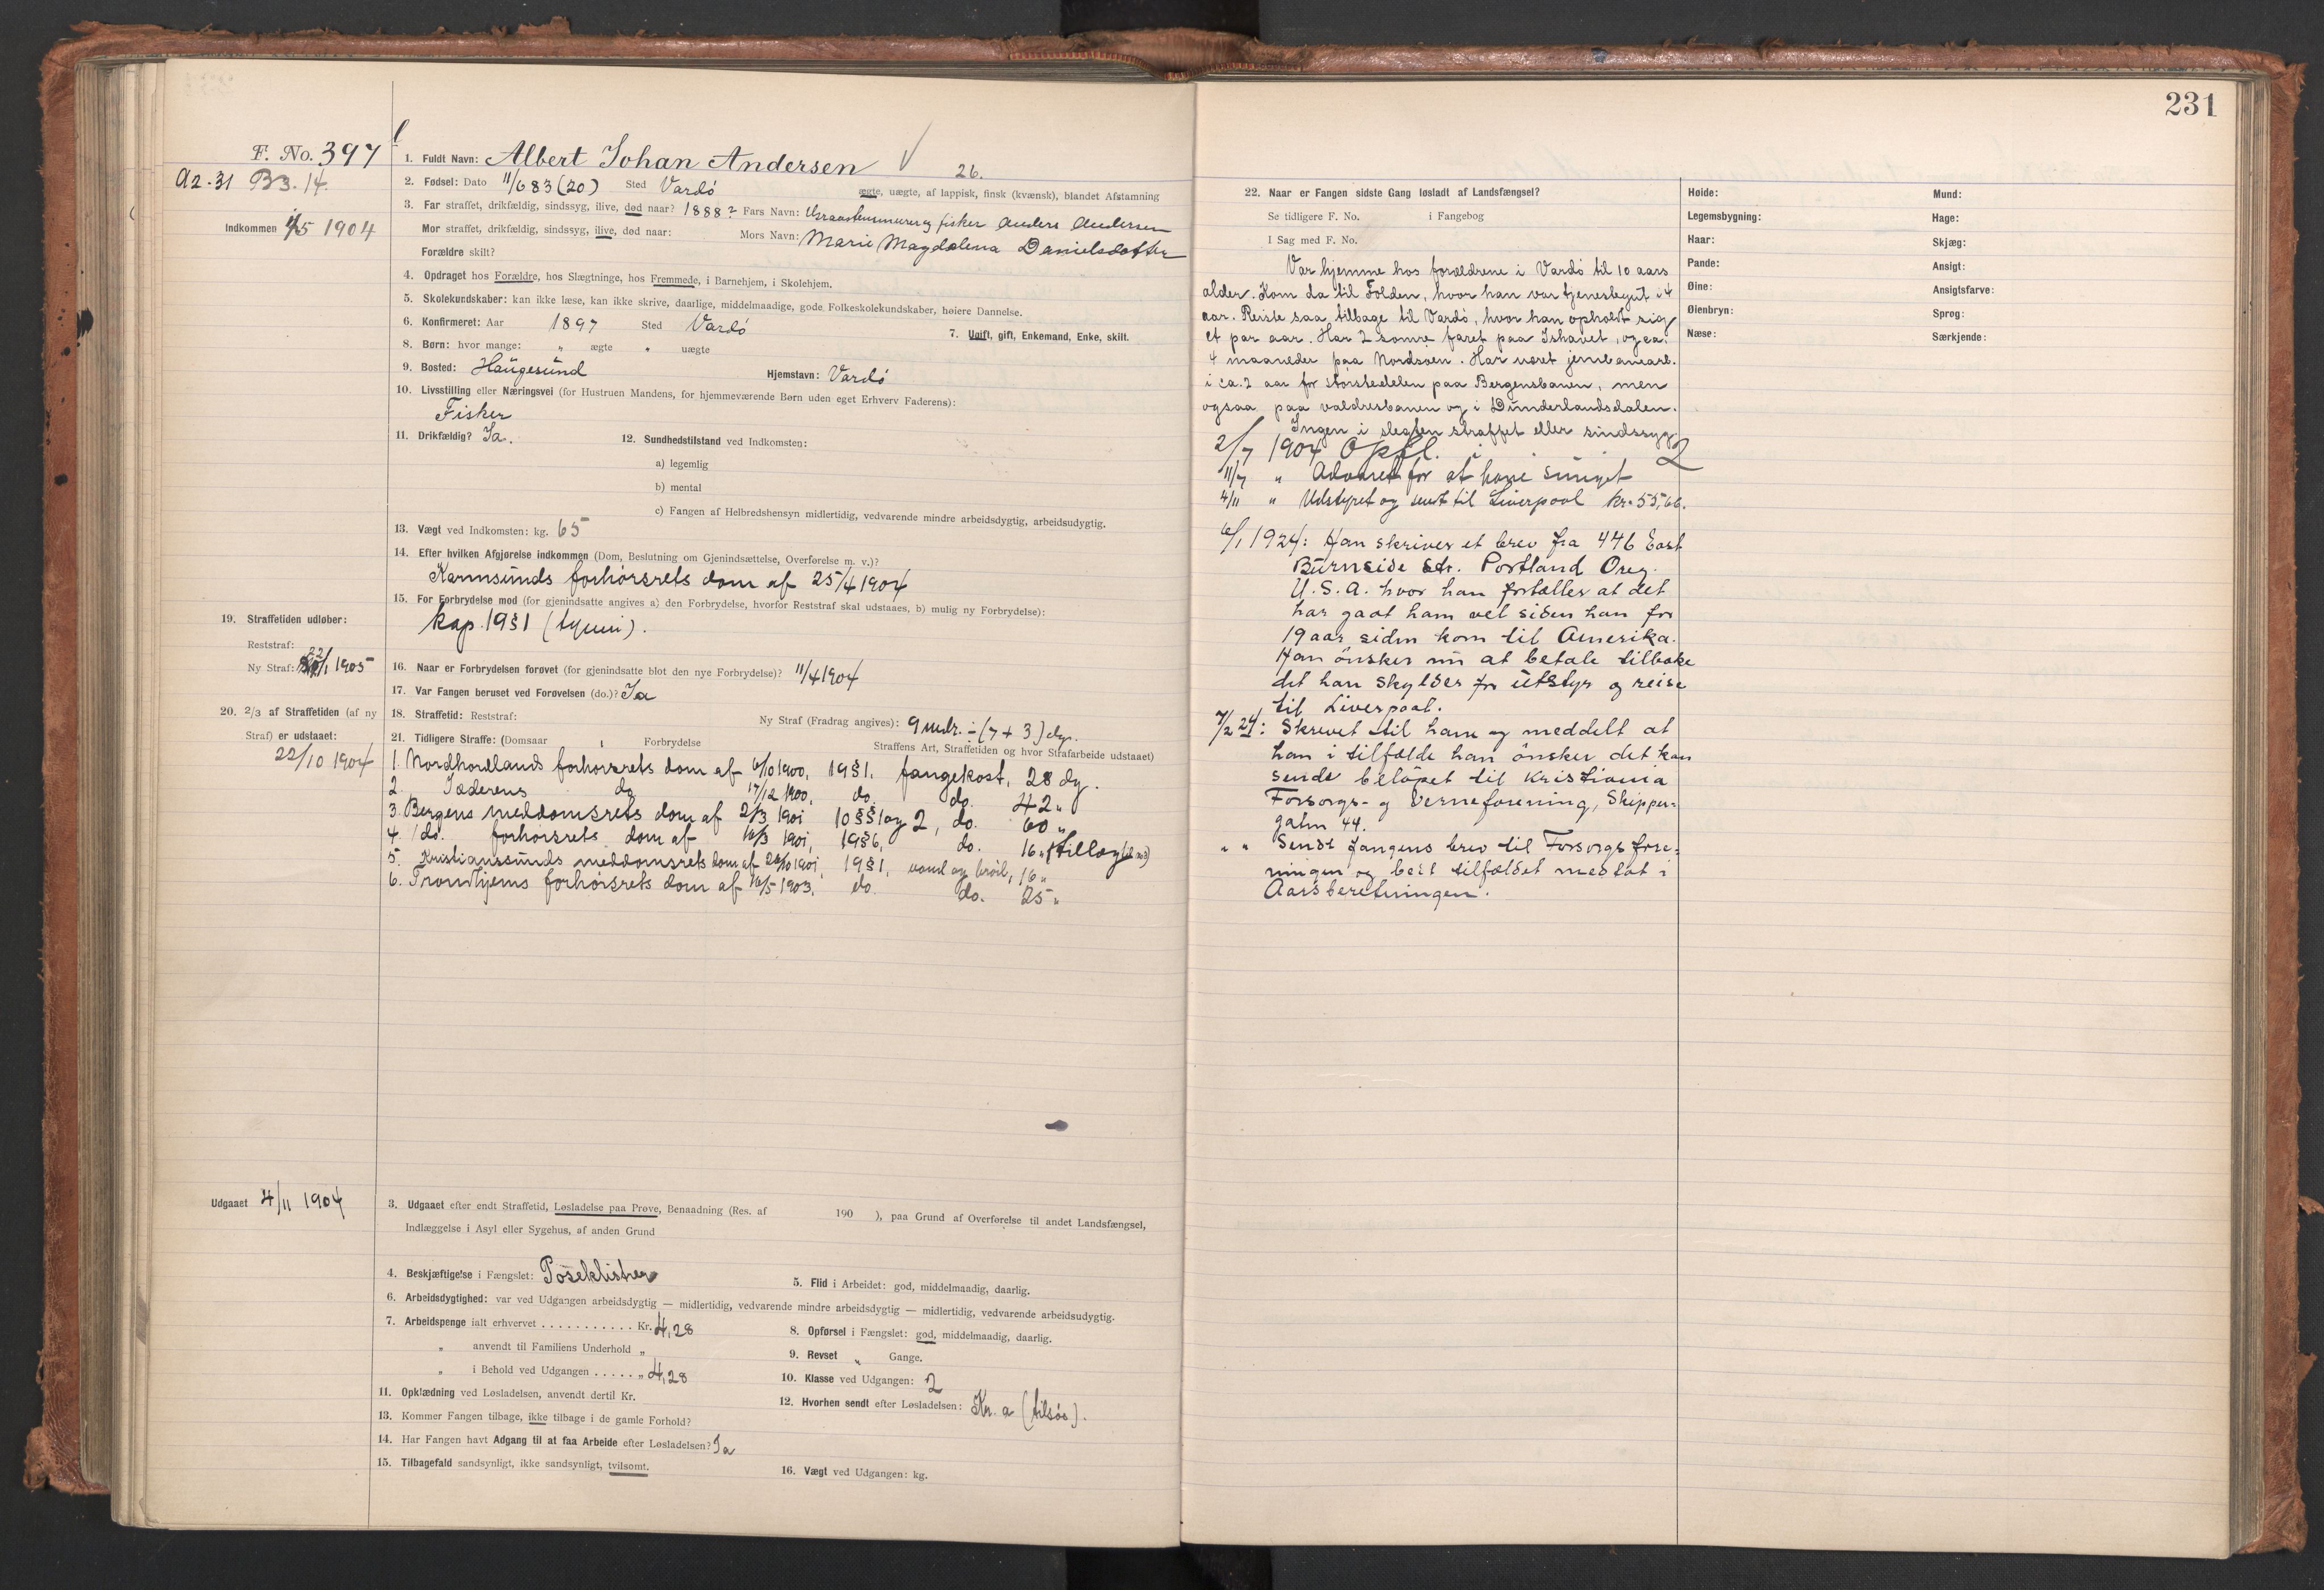 231
F. No. 397
A2.31 B3.14.
Indkommen 4/5 1904
1. Fuldt Navn: Albert Johan Andersen V 26.
2. Fødsel: Dato 11/6 83 (20) Sted Vardö ægte, uægte, af lappisk, finsk (kvænsk), blandet Afstamning
3. Far straffet, drikfældig, sindssyg, ilive, død naar? 1888? Fars Navn: Graastensmurer og fisker Anders Andersen
Mor straffet, drikfældig, sindssyg, ilive, død naar: Mors Navn: Marie Magdalena Danielsdotter
Forældre skilt?
4. Opdraget hos Forældre, hos Slægtninge, hos Fremmede, i Barnehjem, i Skolehjem.
5. Skolekundskaber: kan ikke læse, kan ikke skrive, daarlige, middelmaadige, gode Folkeskolekundskaber, høiere Dannelse.
6. Konfirmeret: Aar 1897 Sted Vardö 7. Ugift, gift, Enkemand, Enke, skilt.
8. Børn: hvor mange: " ægte " uægte
9. Bosted: Haugesund Hjemstavn: Vardö
10. Livsstilling eller Næringsvei (for Hustruen Mandens, for hjemmeværende Børn uden eget Erhverv Faderens):
Fisker
11. Drikfældig? Ja. 12. Sundhedstilstand ved Indkomsten:
a) legemlig
b) mental
c) Fangen af Helbredshensyn midlertidig, vedvarende mindre arbeidsdygtig, arbeidsudygtig.
13. Vægt ved Indkomsten: kg. 65
14. Efter hvilken Afgjørelse indkommen (Dom, Beslutning om Gjenindsættelse, Overførelse m. v.)?
Karmsunds forhörsrets dom af 25/4 1904
15. For Forbrydelse mod (for gjenindsatte angives a) den Forbrydelse, hvorfor Reststraf skal udstaaes, b) mulig ny Forbrydelse):
kap. 19 § 1 (tyveri).
19. Straffetiden udløber:
Reststraf:
Ny Straf: 22/1 1905
16. Naar er Forbrydelsen forøvet (for gjenindsatte blot den nye Forbrydelse)? 11/4 1904
17. Var Fangen beruset ved Forøvelsen (do.)? Ja
20. 2/3 af Straffetiden (af ny
Straf) er udstaaet:
22/10 1904
18. Straffetid: Reststraf: Ny Straf (Fradrag angives): 9 mdr. ÷ (7 + 3) dg.
21. Tidligere Straffe: (Domsaar Forbrydelse Straffens Art, Straffetiden og hvor Strafarbeide udstaaet)
1. Nordhordlands forhörsrets dom af 6/10 1900, 19 § 1, fangekost, 28 dg.
2. Jæderens do 17/12 1900, do. do. 42 "
3. Bergens meddomsrets dom af 2/3 1901 10 §§ 1 og 2, do. 60 "
4. do. forhörsrets dom af 16/3 1901, 19 § 6, do. 16 " (tillæg til no3)
5. Kristianssunds meddomsrets dom af 26/10 1901, 19 § 1, vand og bröd, 16 "
6. Trondhjems forhörsrets dom af 16/5 1903, do. do. 25 "
Udgaaet 4/11 1904
3. Udgaaet efter endt Straffetid, Løsladelse paa Prøve, Benaadning (Res. af 190 ), paa Grund af Overførelse til andet Landsfængsel,
Indlæggelse i Asyl eller Sygehus, af anden Grund
4. Beskjæftigelse i Fængslet: Poseklistrer 5. Flid i Arbeidet: god, middelmaadig, daarlig.
6. Arbeidsdygtighed: var ved Udgangen arbeidsdygtig — midlertidig, vedvarende mindre arbeidsdygtig — midlertidig, vedvarende arbeidsudygtig.
7. Arbeidspenge ialt erhvervet . . . . . . . . . . . Kr. 4,28 8. Opførsel i Fængslet: god, middelmaadig, daarlig.
" anvendt til Familiens Underhold " 9. Revset " Gange.
" i Behold ved Udgangen . . . . . " 4,28 10. Klasse ved Udgangen: 2
11. Opklædning ved Løsladelsen, anvendt dertil Kr. 12. Hvorhen sendt efter Løsladelsen: Kr. a (tilsös).
13. Kommer Fangen tilbage, ikke tilbage i de gamle Forhold?
14. Har Fangen havt Adgang til at faa Arbeide efter Løsladelsen? Ja
15. Tilbagefald sandsynligt, ikke sandsynligt, tvilsomt. 16. Vægt ved Udgangen: kg.
22. Naar er Fangen sidste Gang løsladt af Landsfængsel?
Se tidligere F. No. i Fangebog
I Sag med F. No.
Var hjemme hos forældrene i Vardö til 10 aars
alder. Kom da til Folden, hvor han var tjenestegut i 4
aar. Reiste saa tilbage til Vardö, hvor han opholdt sig
et par aar. Har 2 somre faret paa Ishavet, og ca.
4 maaneder paa Nordsöen. Har været jernbanearb.
i ca. 2 aar for störstedelen paa Bergensbanen, men
ogsaa paa valdresbanen og i Dunderlandsdalen.
Ingen i slegten straffet eller sindssyg.
2/7 1904 Opfl. i 2
11/7 " Advaret for at have sunget
4/11 " Udstyret og sendt til Liverpool kr. 55,66.
6/1 1924: Han skriver et brev fra 446 East
Burnside Str. Portland Oreg.
U.S.A. hvor han fortæller at det
har gaat ham vel siden han for
19 aar siden kom til Amerika.
Han önsker nu at betale tilbake
det han skylder for utstyr og reise
til Liverpool.
7/2 24: Skrevet til ham og meddelt at
han i tilfælde han önsker det kan
sende belöpet til Kristiania
Forsorgs- og Verneforening, Skipper-
gatn 44.
" " Sendt fangens brev til Forsorgsfore-
ningen og bedt tilfældet medtat i
Aarsberetningen.
Høide:
Legemsbygning:
Haar:
Pande:
Øine:
Øienbryn:
Næse:
Mund:
Hage:
Skjæg:
Ansigt:
Ansigtsfarve:
Sprog:
Særkjende: